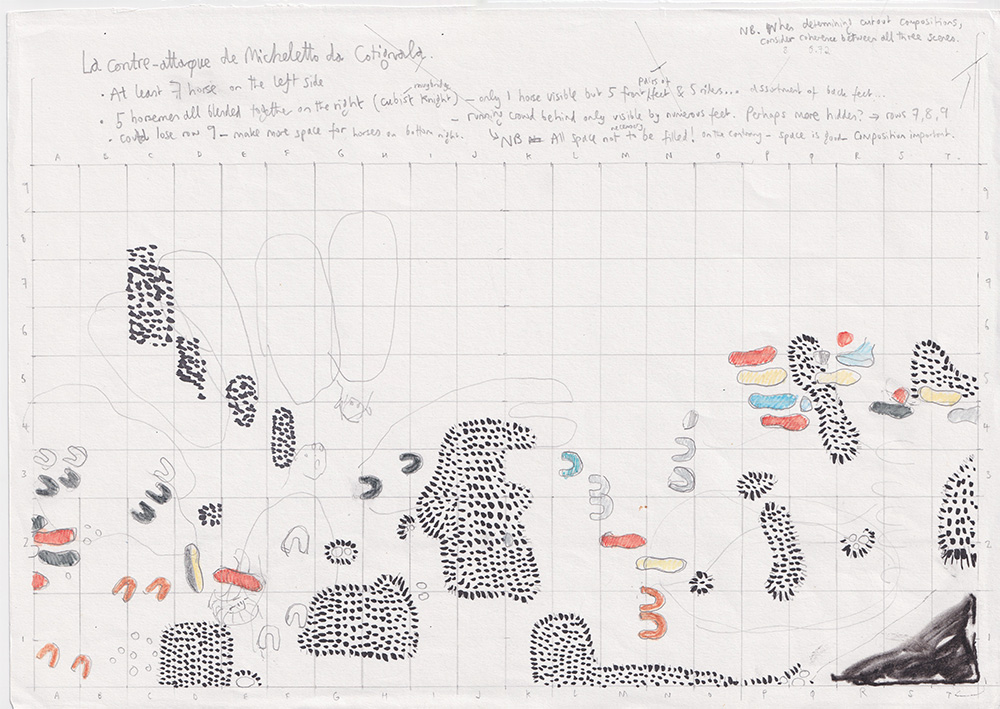 NB. When determining cutout compositions,
consider coherence between all three scenes.
La contre-attaque de Micheletto da Cotignola.
• At least 7 horse on the left side
• 5 horsemen all blended together on the right (cubist knight) – only 1 horse visible but 5 front feet & 5 riders... assortment of back feet...
pairs of
– running crowd behind only visible by numerous feet. Perhaps more hidden? → rows 7, 8, 9
• could lose row 9 – make more space for horses on bottom right.
NB All space not necessary to be filled! on the contrary – space is good – composition important.
A B C D E F G H I J K L M N O P Q R S T
9 9
8 8
7 9
6 6
5 5
4 4
3 3
2 2
1 1
A B C D E F G H I J K L M N O P Q R S T